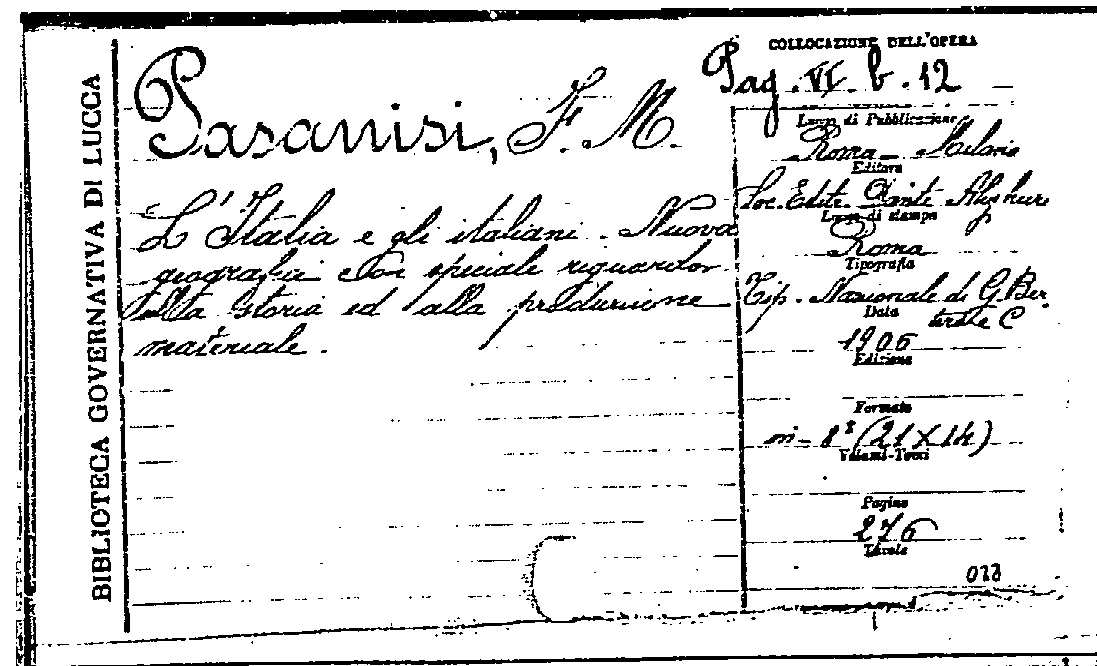 BIBLIOTECA GOVERNATIVA DI LUCCA
Pasanisi, F. M.
L'Italia e gli italiani. Nuova
geografia con speciale riguardo
alla storia ed alla produzione
materiale.
COLLOCAZIONE DELL'OPERA
Pag. VI. b. 12
Luogo di Pubblicazione
Roma - Milano
Editore
Soc. Edit. Dante Alighieri
Luogo di stampa
Roma
Tipografia
Tip. Nazionale di G. Ber
tero e C
Data
1906
Edizione
Formato
in-8° (21 X 14)
Volumi-Tomi
Pagine
276
Tavole